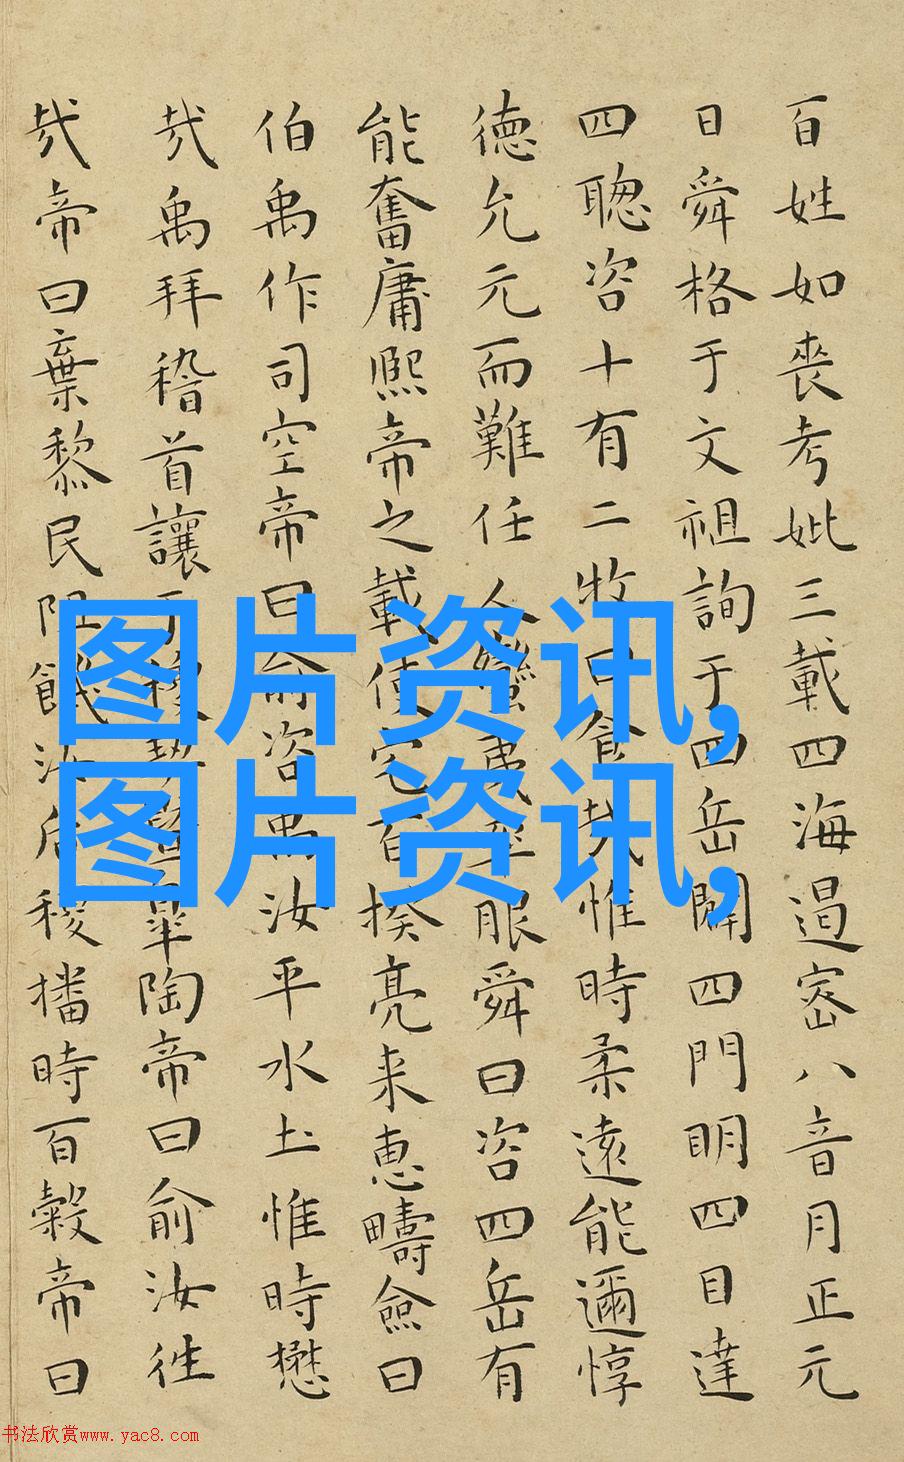 百姓如喪考妣三載四海遏密八音月正元
日舜格于文祖詢于四岳闢四門明四目達
四聦咨十有二牧曰食哉惟時柔遠能邇惇
德允元而難任人蠻夷率服舜曰咨四岳有
能奮庸熙帝之載使宅百揆亮采惠疇僉曰
伯禹作司空帝曰俞咨禹汝平水土惟時懋
哉禹拜稽首讓于稷契暨皋陶帝曰俞汝往
哉帝曰棄黎民阻饑汝后稷播時百穀帝曰
图片资讯,
图片资讯,
书法欣赏www.yac8.com